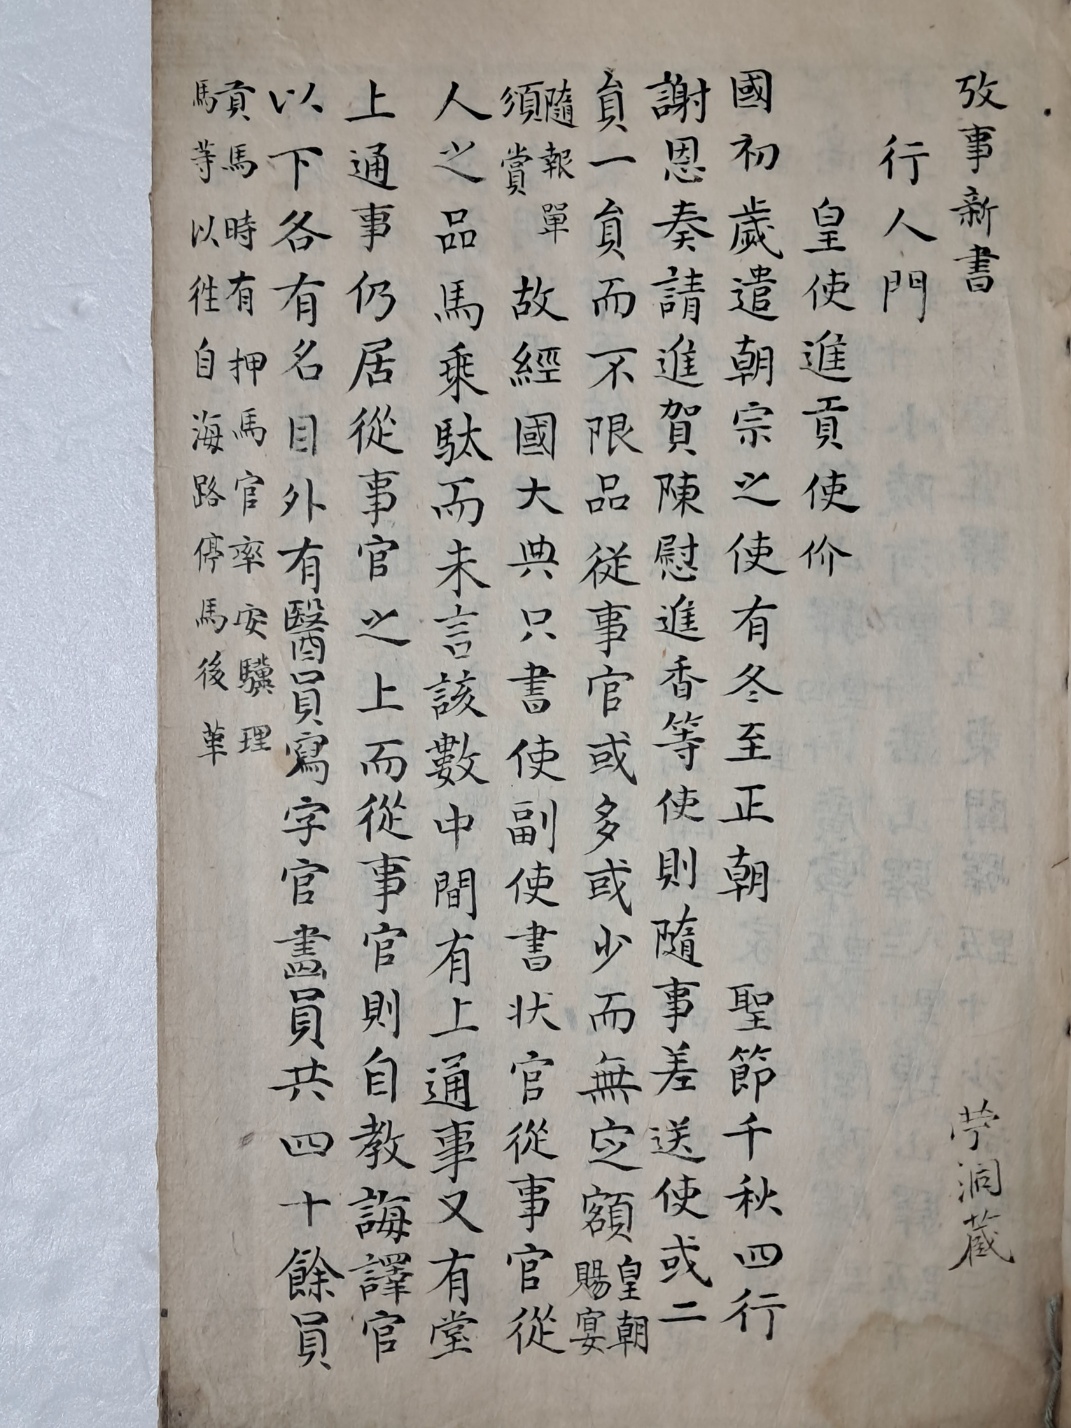 攷事新書
荢洞蔵
行人門
皇使進貢使价
國初歲遣朝宗之使有冬至正朝 聖節千秋四行
謝恩奏請進賀陳慰進香等使則隨事差送使或二
負一負而不限品従事官或多或少而無定額皇朝賜宴
隨報單須賞 故經國大典只書使副使書状官従事官從
人之品馬乗駄而未言該數中間有上通事又有堂
上通事仍居從事官之上而從事官則自教誨譯官
以下各有名目外有醫員寫字官畵員共四十餘員
貢馬時有押馬官率安驥理
馬等以徃自海路停馬後革